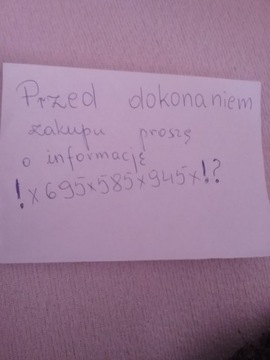 Przed dokonaniem
zakupu proszę
o informację
!x695x585x945x!?